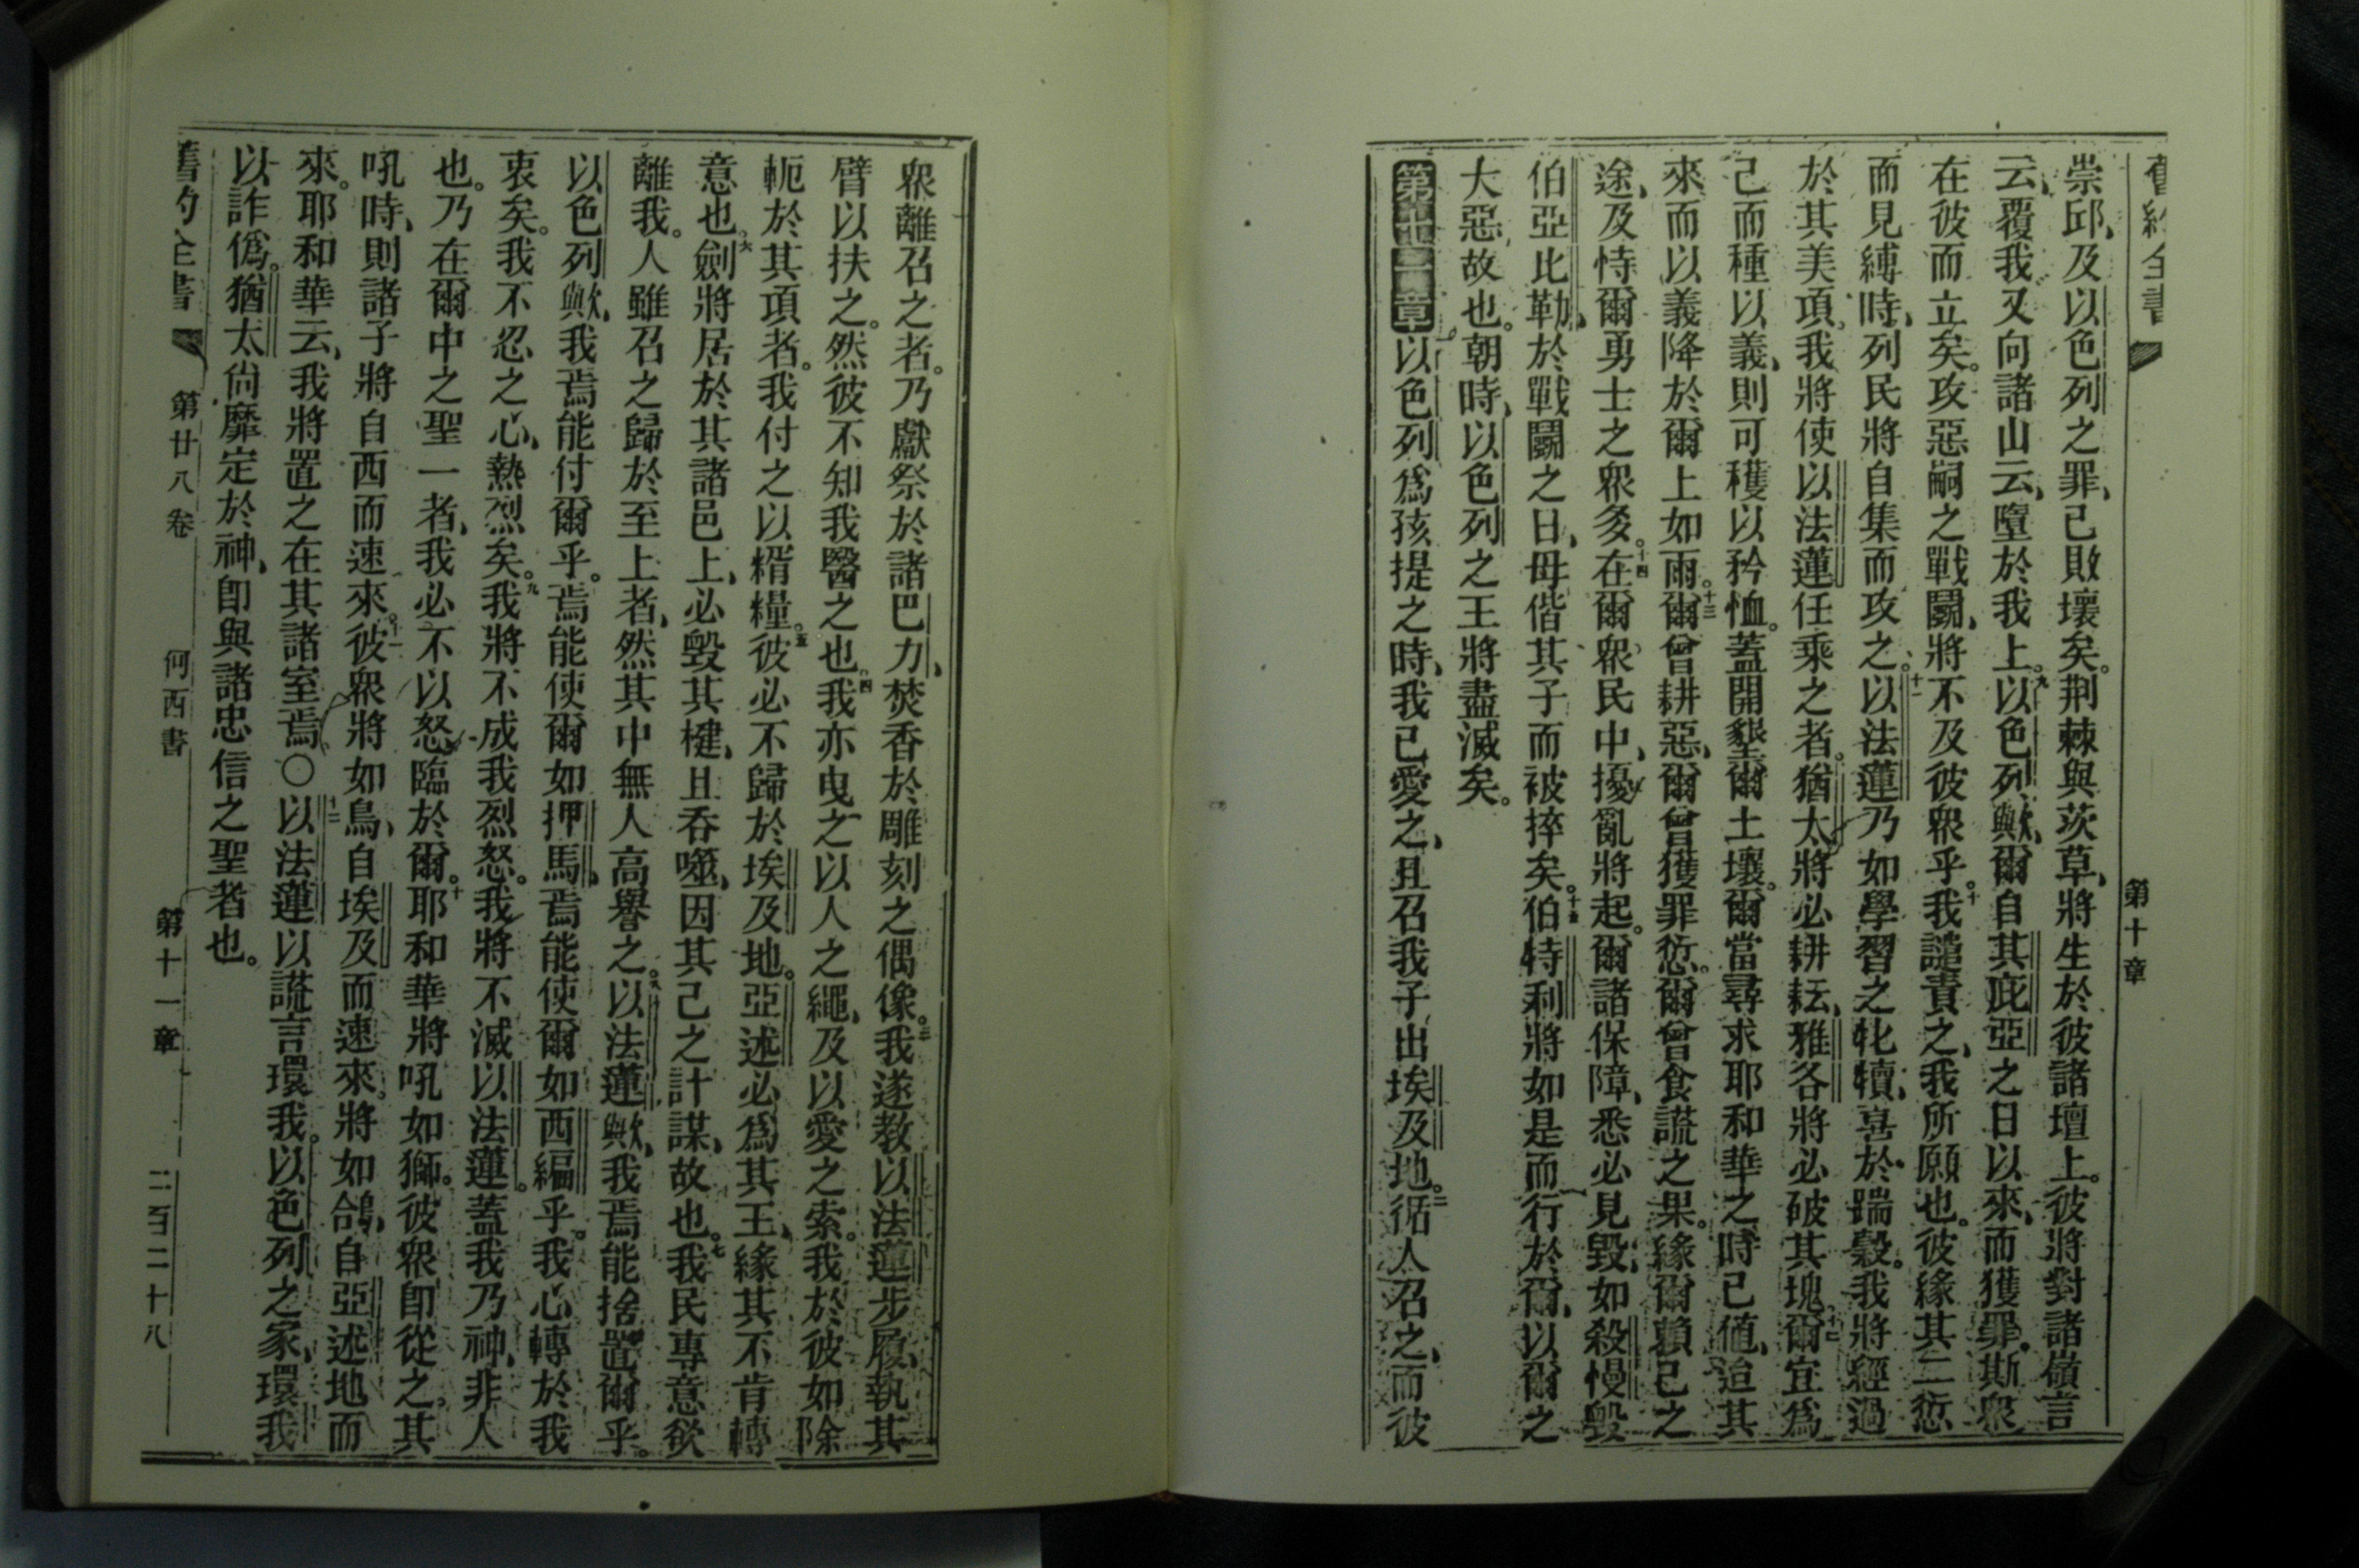 舊約全書 第十章
崇邱、及以色列之罪、已敗壞矣。荆棘與茨草、將生於彼諸壇上。彼將對諸嶺言
云、覆我、又向諸山云、墮於我上。九以色列歟、爾自其庇亞之日以來、而獲罪、斯眾
在彼而立矣。攻惡嗣之戰鬭、將不及彼眾乎。十我譴責之、我所願也。彼緣其二愆
而見縛時、列民將自集而攻之。十一以法蓮乃如學習之牝犢、喜於踹穀。我將經過
於其美項、我將使以法蓮任乘之者。猶太將必耕耘、雅各將必破其塊。十二爾宜爲
己而種以義、則可穫以矜恤。蓋開墾爾土壤。爾當尋求耶和華之時已値、迨其
來而以義降於爾上如雨。十三爾曾耕惡、爾曾獲罪愆。爾曾食謊之果。緣爾賴己之
途、及恃爾勇士之眾多。十四在爾眾民中、擾亂將起。爾諸保障、悉必見毀、如殺慢毀
伯亞比勒、於戰鬭之日、母偕其子而被捽矣。十五伯特利將如是而行於爾、以爾之
大惡故也。朝時、以色列之王將盡滅矣。
第十一章以色列爲孩提之時、我已愛之、且召我子出埃及地。二循人召之、而彼
眾離召之者。乃獻祭於諸巴力、焚香於雕刻之偶像。三我遂教以法蓮步履、執其
臂以扶之。然彼不知我醫之也。四我亦曳之以人之繩、及以愛之索。我於彼如除
軛於其項者。我付之以糈糧。五彼必不歸於埃及地。亞述必爲其王、緣其不肯轉
意也。六劍將居於其諸邑上、必毀其楗、且吞噬、因其己之計謀、故也。七我民專意欲
離我。人雖召之歸於至上者、然其中無人高譽之。八以法蓮歟、我焉能捨置爾乎。
以色列歟、我焉能付爾乎。焉能使爾如押馬、焉能使爾如西編乎。我心轉於我
衷矣。我不忍之心、熱烈矣。九我將不成我烈怒。我將不滅以法蓮。蓋我乃神、非人
也。乃在爾中之聖一者、我必不以怒臨於爾。十耶和華將吼如獅。彼眾卽從之。其
吼時、則諸子將自西而速來。十一彼眾將如鳥、自埃及而速來。將如鴿、自亞述地而
來。耶和華云、我將置之在其諸室焉。〇十二以法蓮以謊言環我。以色列之家、環我
以詐僞。猶太尙靡定於神、卽與諸忠信之聖者也。
舊約全書 第廿八卷 何西書 第十一章 二百二十八